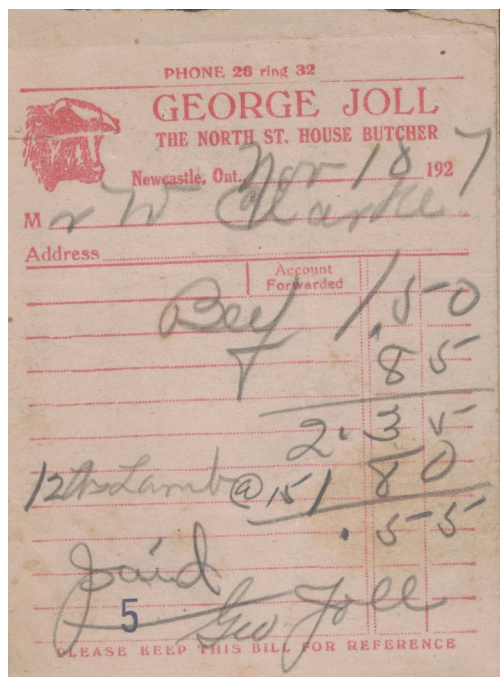 PHONE 26 ring 32
GEORGE JOLL
THE NORTH ST. HOUSE BUTCHER
Newcastle, Ont., Nov 18 1927
Mr W Clarke
Address
Account
Forwarded
Beef 1.50
.85
2.35
12 lbs Lamb @ 15 1 80
.55
Paid
5
Geo Joll
PLEASE KEEP THIS BILL FOR REFERENCE